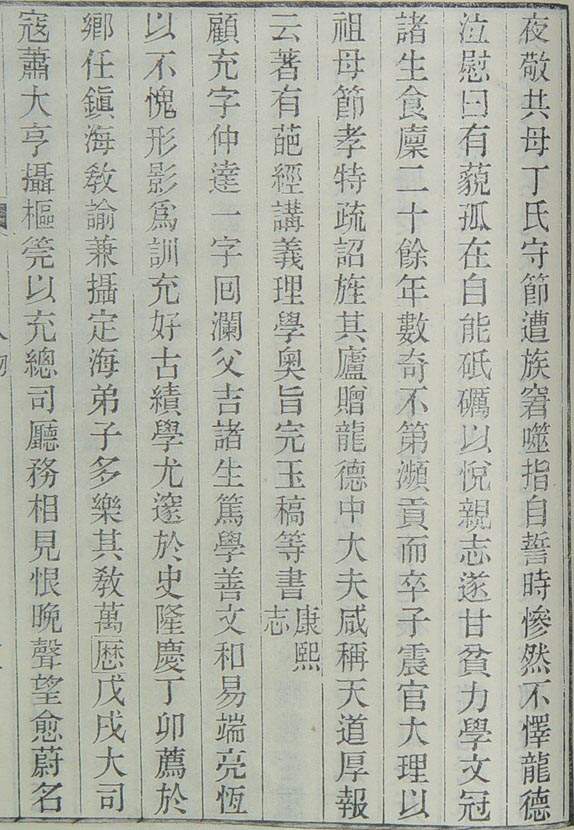 夜敬共母丁氏守節遭族窘噬指自誓時慘然不懌龍德
泣慰曰有藐孤在自能砥礪以悅親志遂甘貧力學文冠
諸生食廩二十餘年數奇不第瀕貢而卒子震官大理以
祖母節孝特疏詔旌其廬贈龍德中大夫咸稱天道厚報
云著有葩經講義理學奧旨完玉稿等書康熙志
顧充字仲達一字回瀾父吉諸生篤學善文和易端亮恆
以不愧形影爲訓充好古績學尤邃於史隆慶丁卯薦於
鄉任鎮海敎諭兼攝定海弟子多樂其敎萬曆戊戌大司
寇蕭大亨攝樞筦以充總司廳務相見恨晚聲望愈蔚名